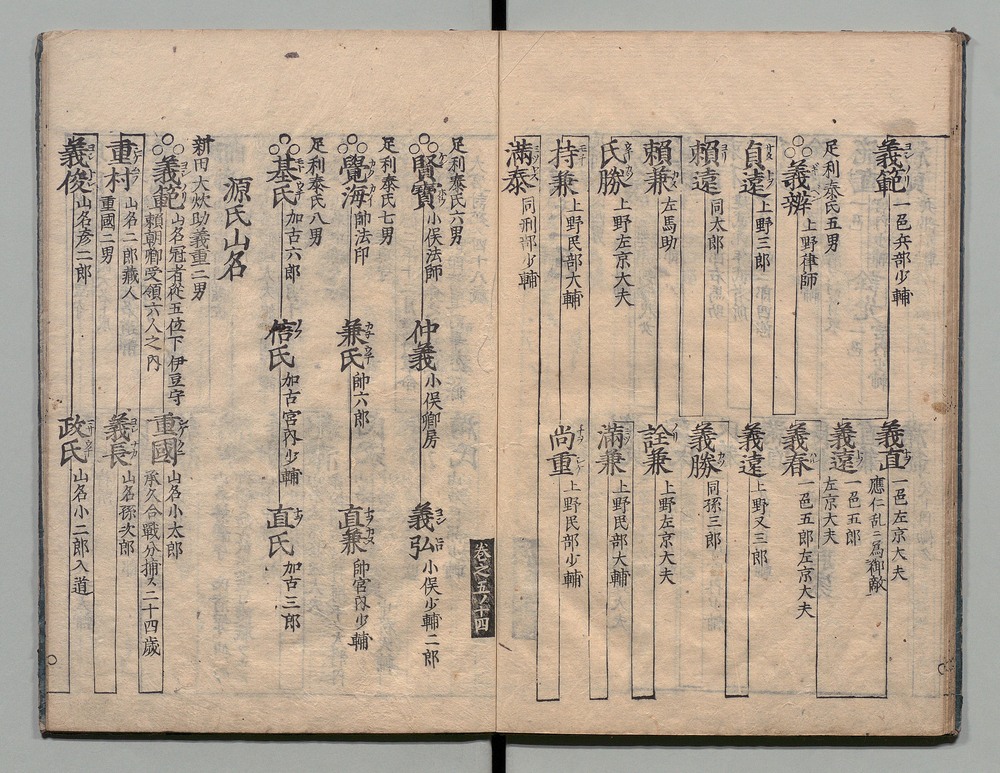 義範 一邑兵部少輔
義直 一邑左京大夫
應仁乱ニ為御敵
義遠 一邑五郎
左京大夫
義春 一邑五郎左京大夫
足利泰氏五男
義辨 上野律師
貞遠 上野三郎
義遠 上野又三郎
頼遠 同太郎
義勝 同孫三郎
頼兼 左馬助
詮兼 上野左京大夫
氏勝 上野左京大夫
満兼 上野民部大輔
持兼 上野民部大輔
尚重 上野民部少輔
満泰 同刑部少輔
卷之五ノ十四
足利泰氏六男
賢寶 小俣法師
仲義 小俣卿房
義弘 小俣少輔二郎
足利泰氏七男
覺海 帥法印
兼氏 帥六郎
直兼 帥宮内少輔
足利泰氏八男
基氏 加古六郎
信氏 加古宮内少輔
直氏 加古三郎
源氏山名
新田大炊助義重二男
義範 山名冠者從五位下伊豆守
頼朝卿受領六人之内
重國 山名小太郎
承久合戰分捕ス二十四歳
重村 山名二郎蔵人
重國二男
義長 山名孫次郎
義俊 山名彦二郎
政氏 山名小二郎入道